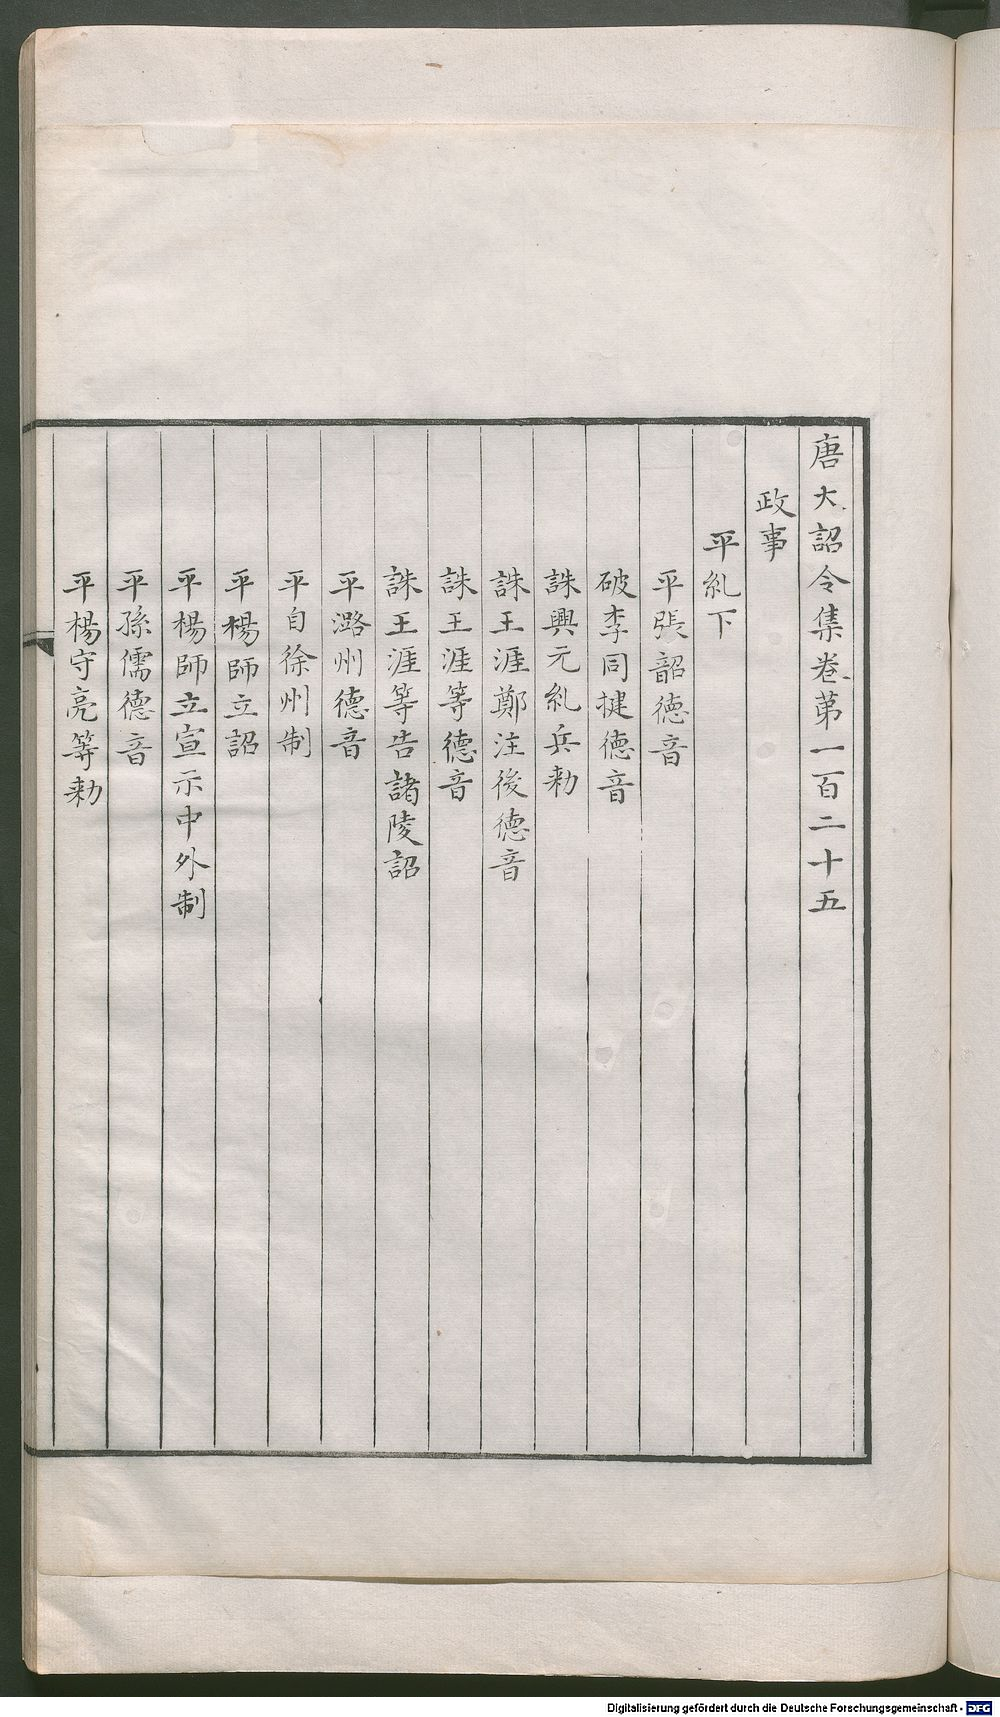 唐大詔令集卷第一百二十五
政事
平乱下
平張韶德音
破李同揵德音
誅興元乱兵勑
誅王涯鄭注後德音
誅王涯等德音
誅王涯等告諸陵詔
平潞州德音
平自徐州制
平楊師立詔
平楊師立宣示中外制
平孫儒德音
平楊守亮等勑
Digitalisierung gefördert durch die Deutsche Forschungsgemeinschaft - DFG